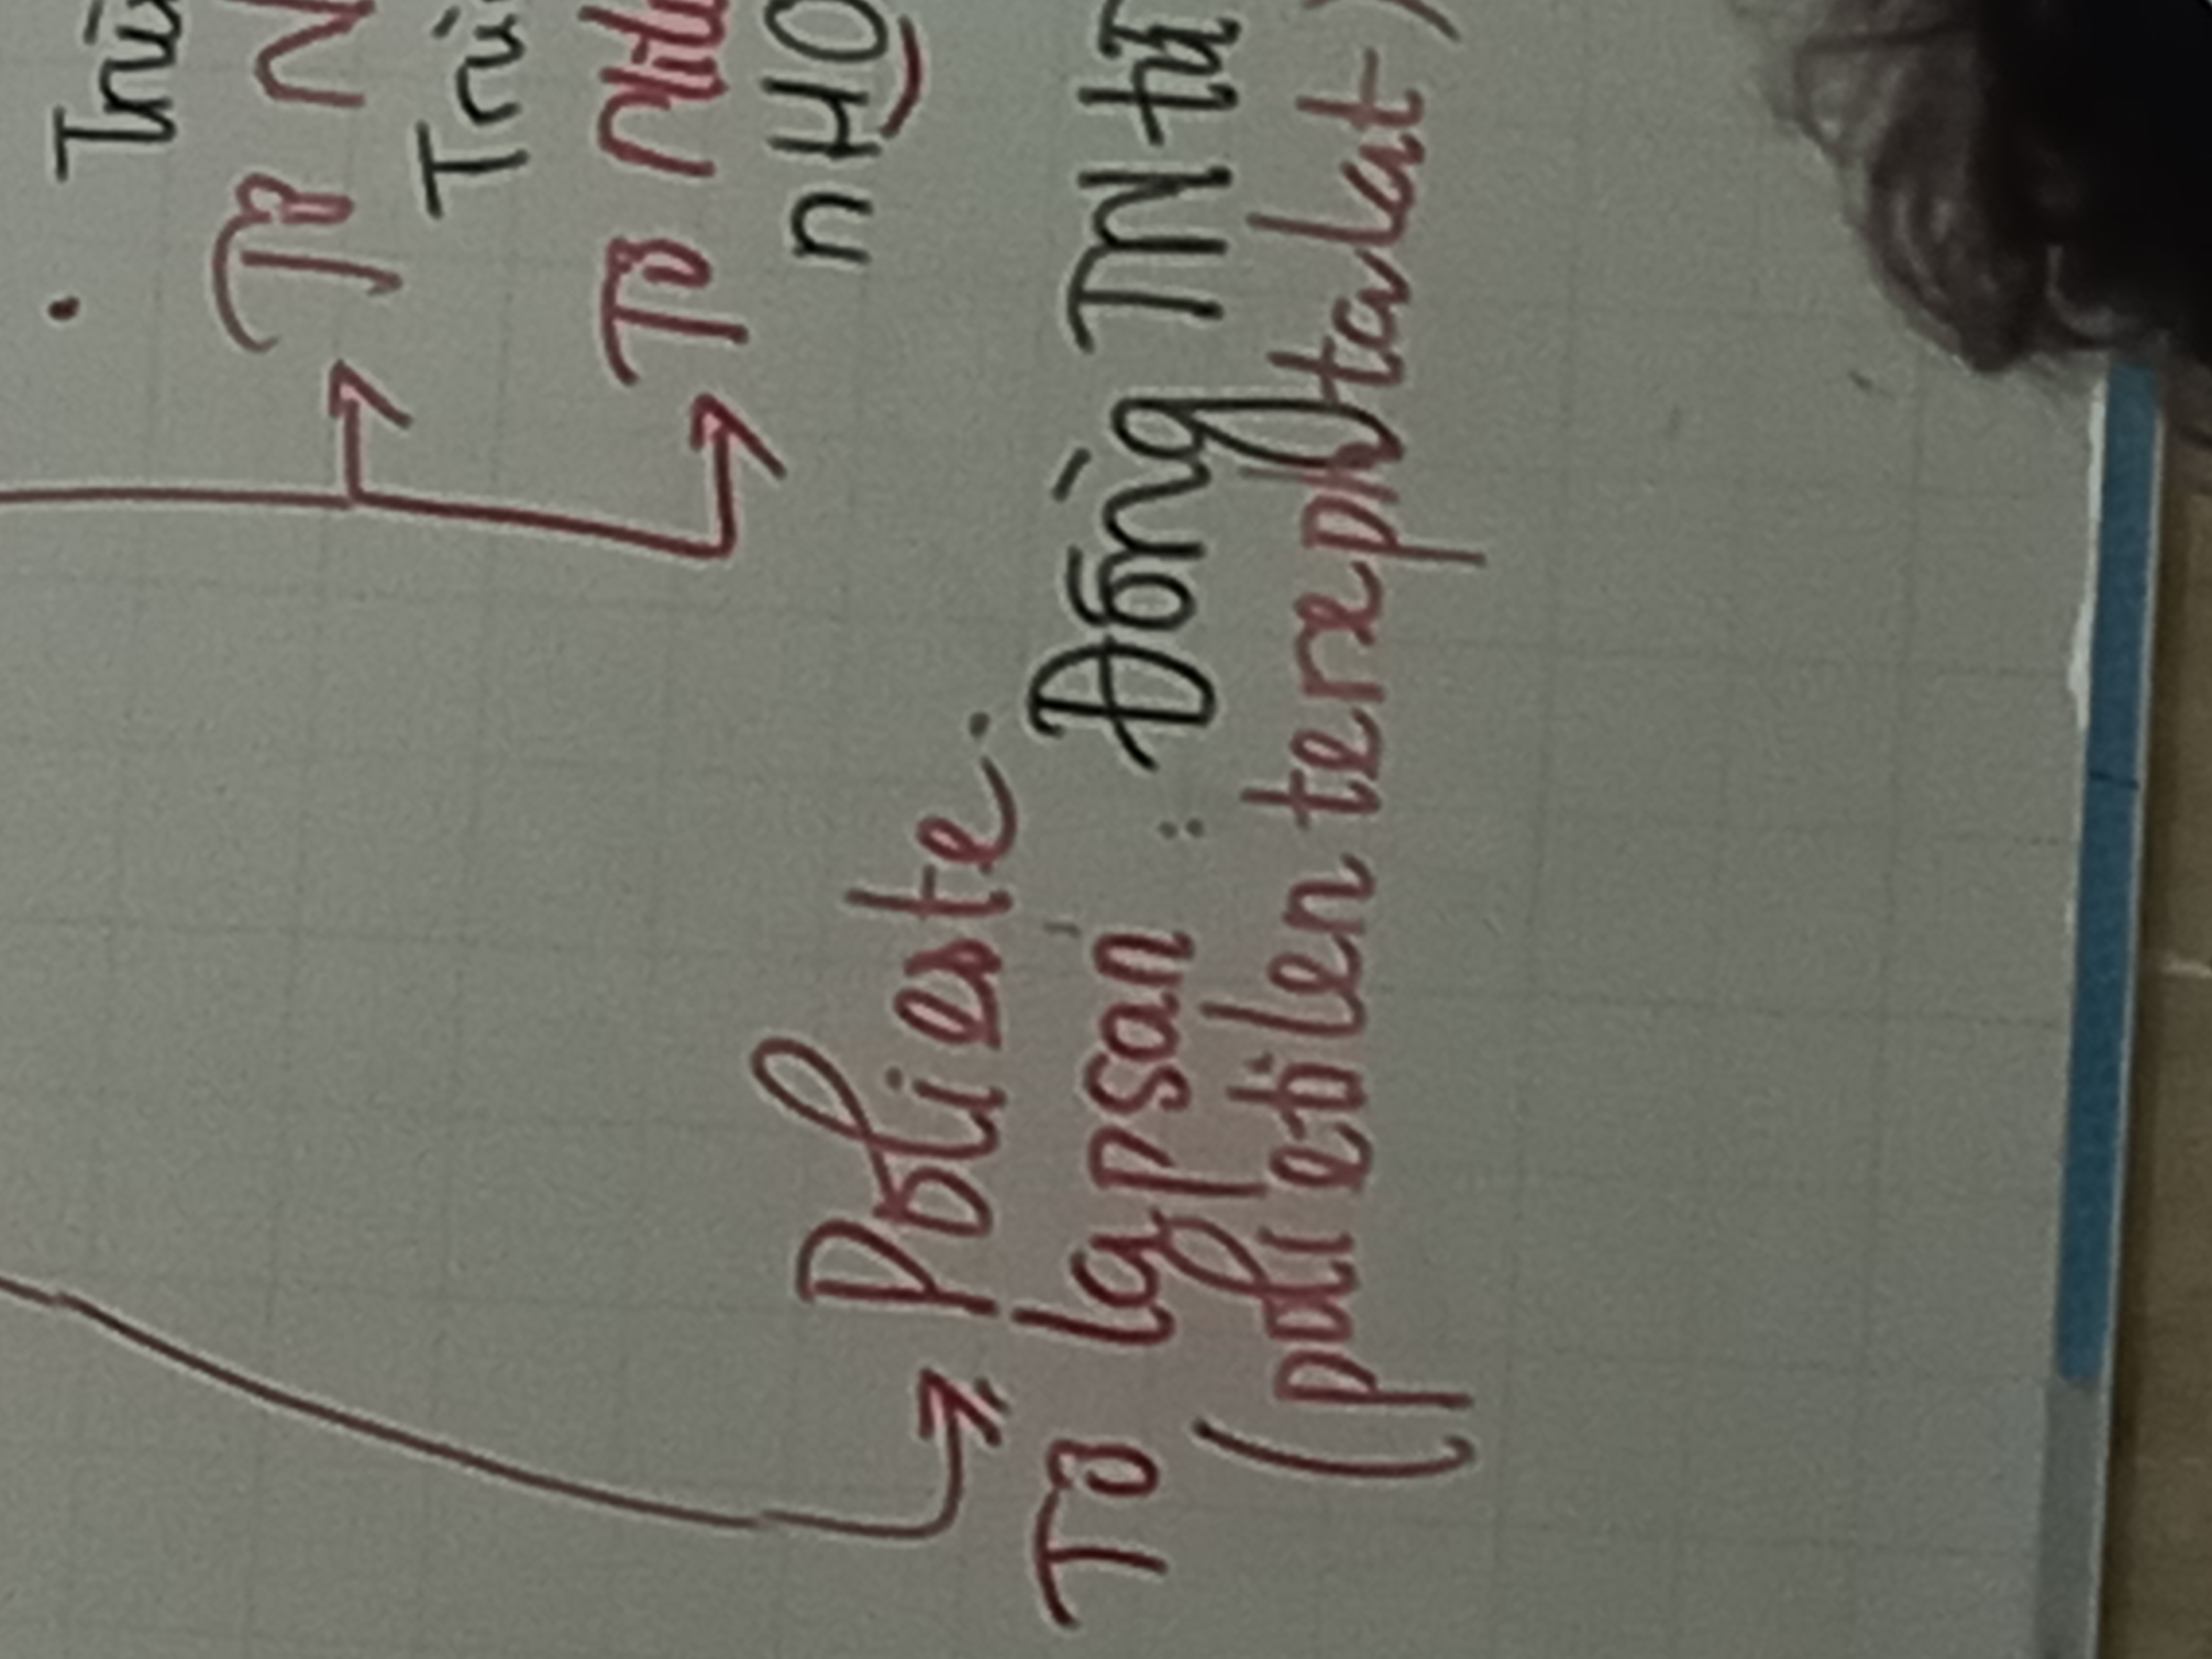 Tơ
Tơ
nHO
Polieste.
Tơ lapsan : Đồng TN từ
(polietilen terephtalat)